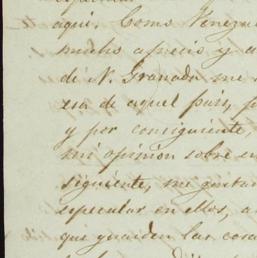 aquí. Como Venezue
mucho aprecio y a
de N. Granada me
de aquel país, p
y por consiguiente,
mi opinión sobre su
siguiente, me
especular en ellos, a
que guarden las cosa